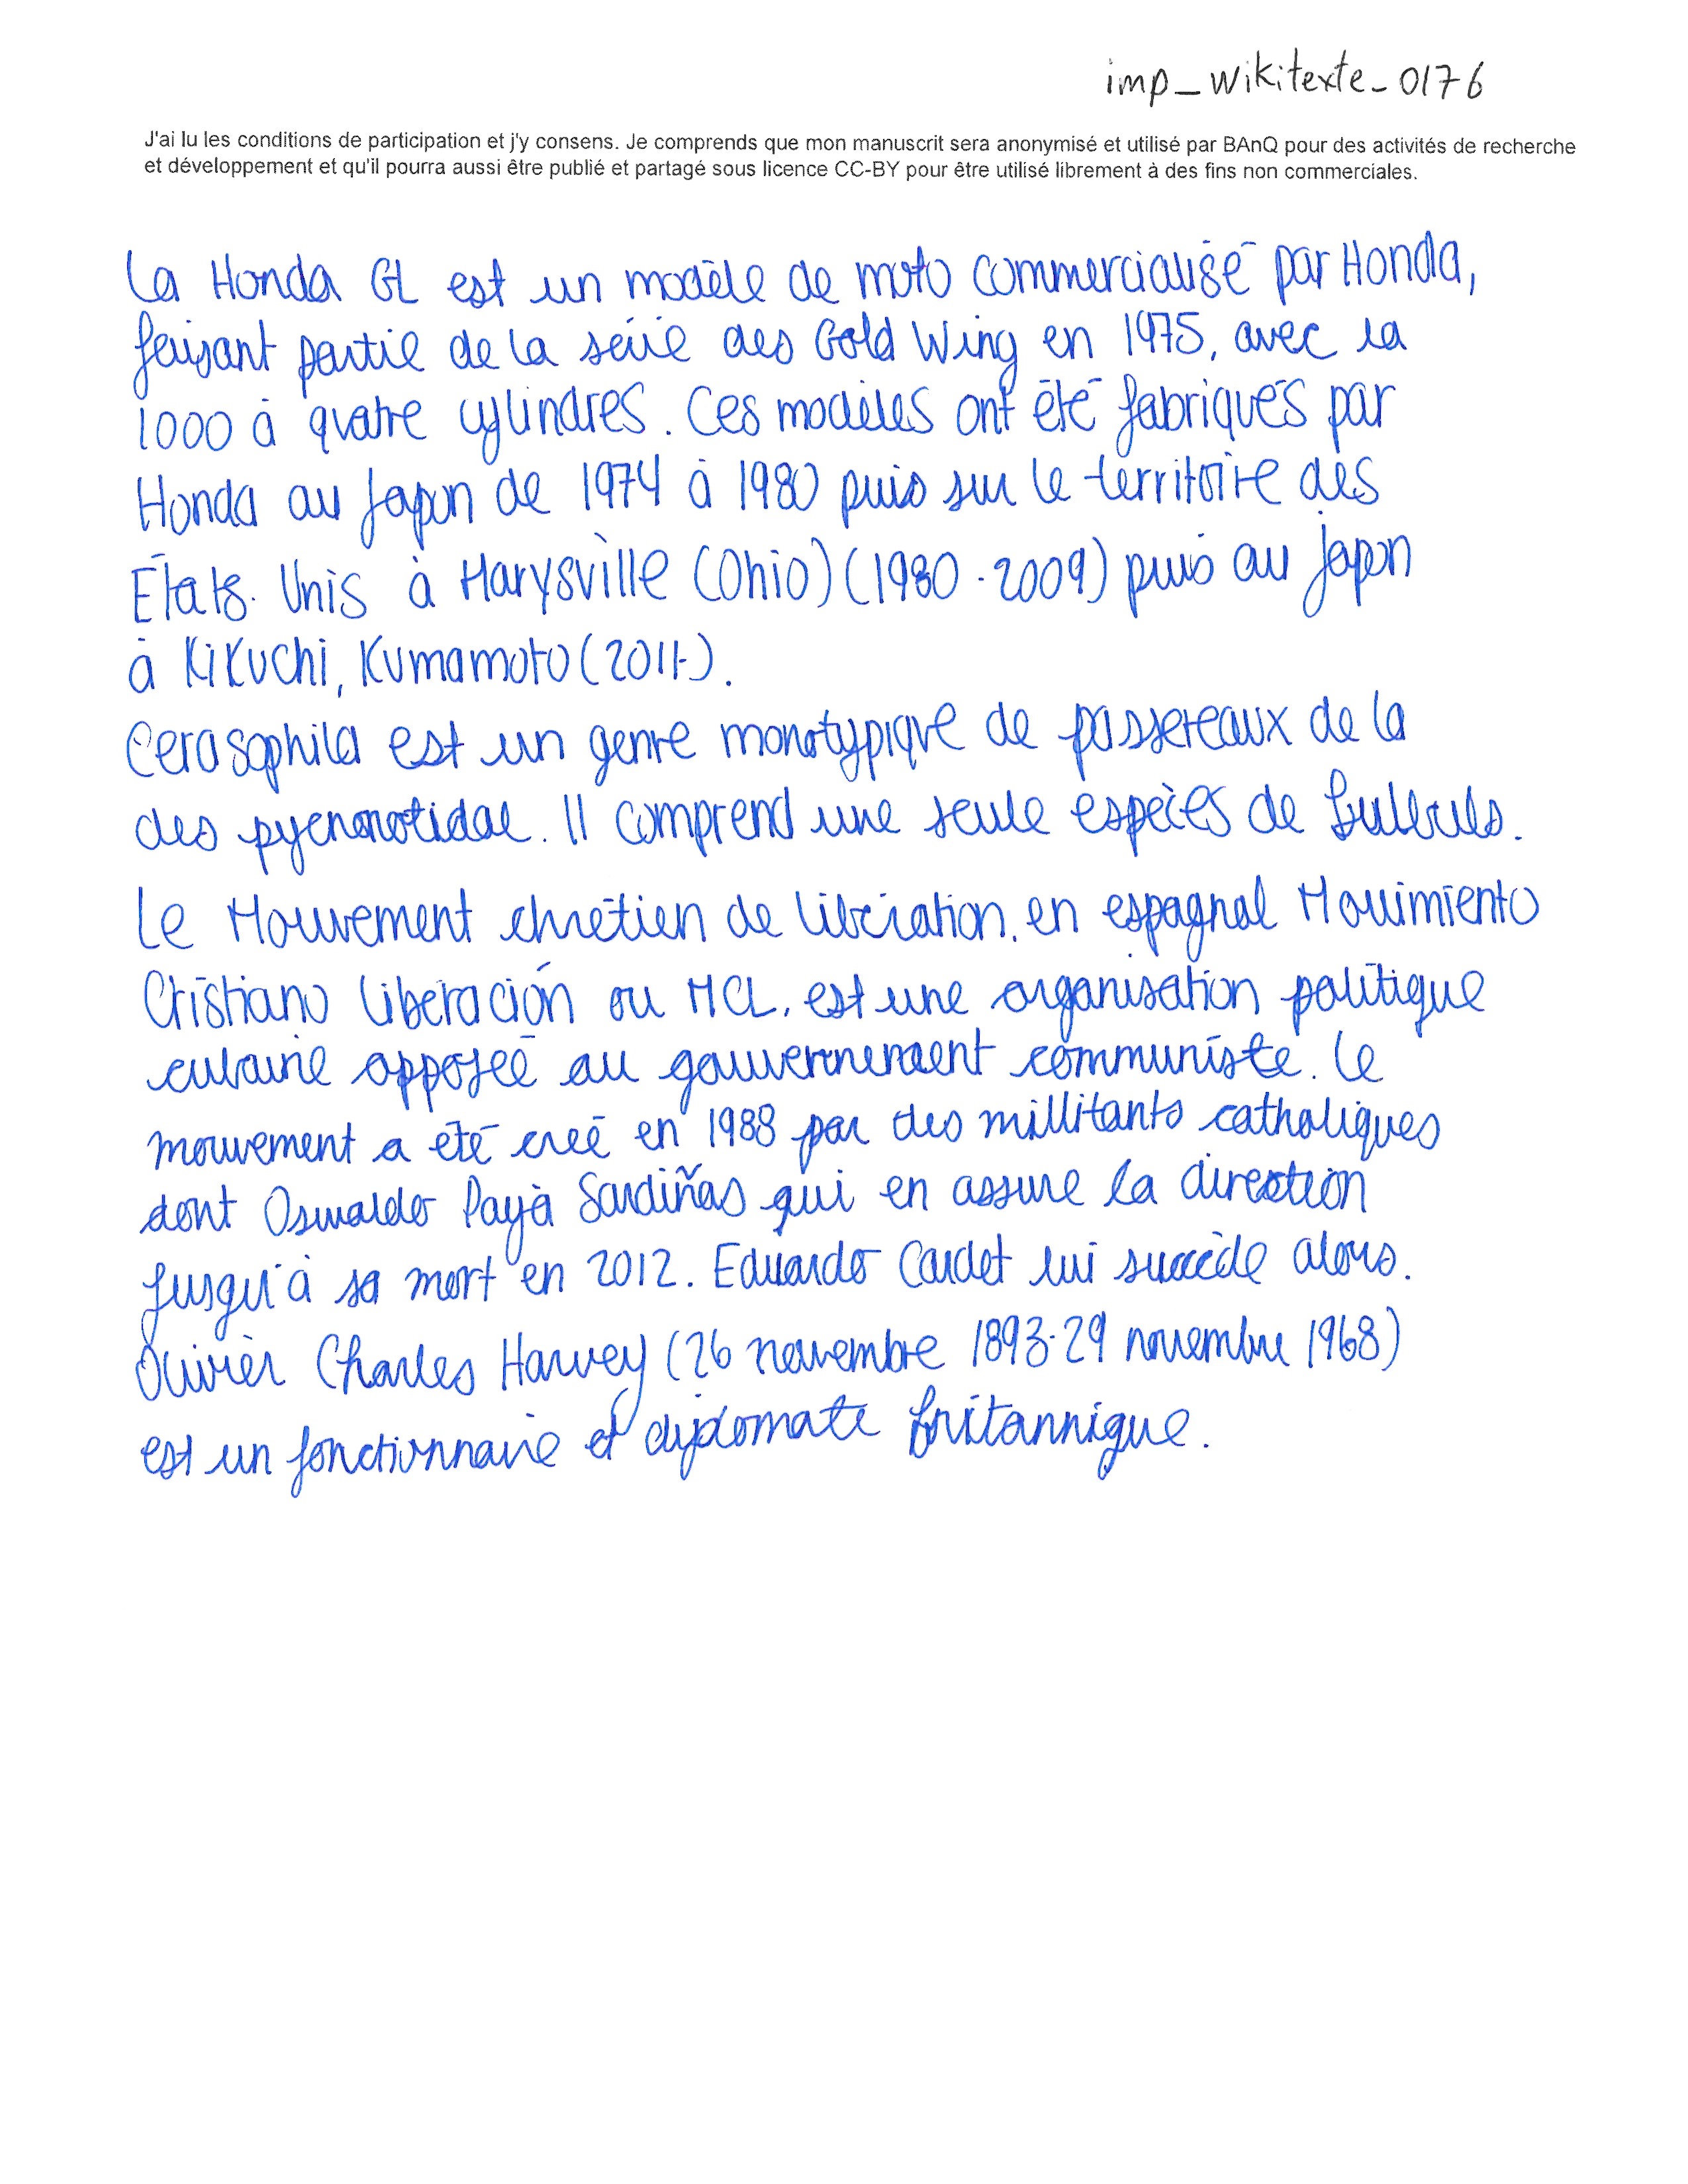 imp_wikitexte_0176
J'ai lu les conditions de participation et j'y consens. Je comprends que mon manuscrit sera anonymisé et utilisé par BAnQ pour des activités de recherche
et développement et qu'il pourra aussi être publié et partagé sous licence CC-BY pour être utilisé librement à des fins non commerciales.
La Honda GL est un modèle de moto commercialisé par Honda,
faisant partie de la série des Gold Wing en 1975, avec la
1000 à quatre cylindres. Ces modèles ont été fabriqués par
Honda au Japon de 1974 à 1980 puis sur le territoire des
États-Unis à Marysville (Ohio) (1980-2009) puis au Japon
à Kikuchi, Kumamoto (2011-).
Cerasophila est un genre monotypique de passereaux de la
des pycnonotidae. Il comprend une seule espèces de bulbuls.
Le Mouvement chrétien de libération, en espagnol Movimiento
Cristiano Liberación ou MCL, est une organisation politique
cubaine opposée au gouvernement communiste. Le
mouvement a été créé en 1988 par des millitants catholiques
dont Oswaldo Payà Sardiñas qui en assure la direction
jusqu'à sa mort en 2012. Eduardo Cardet lui succède alors.
Olivier Charles Harvey (26 novembre 1893-29 novembre 1968)
est un fonctionnaire et diplomate britannique.